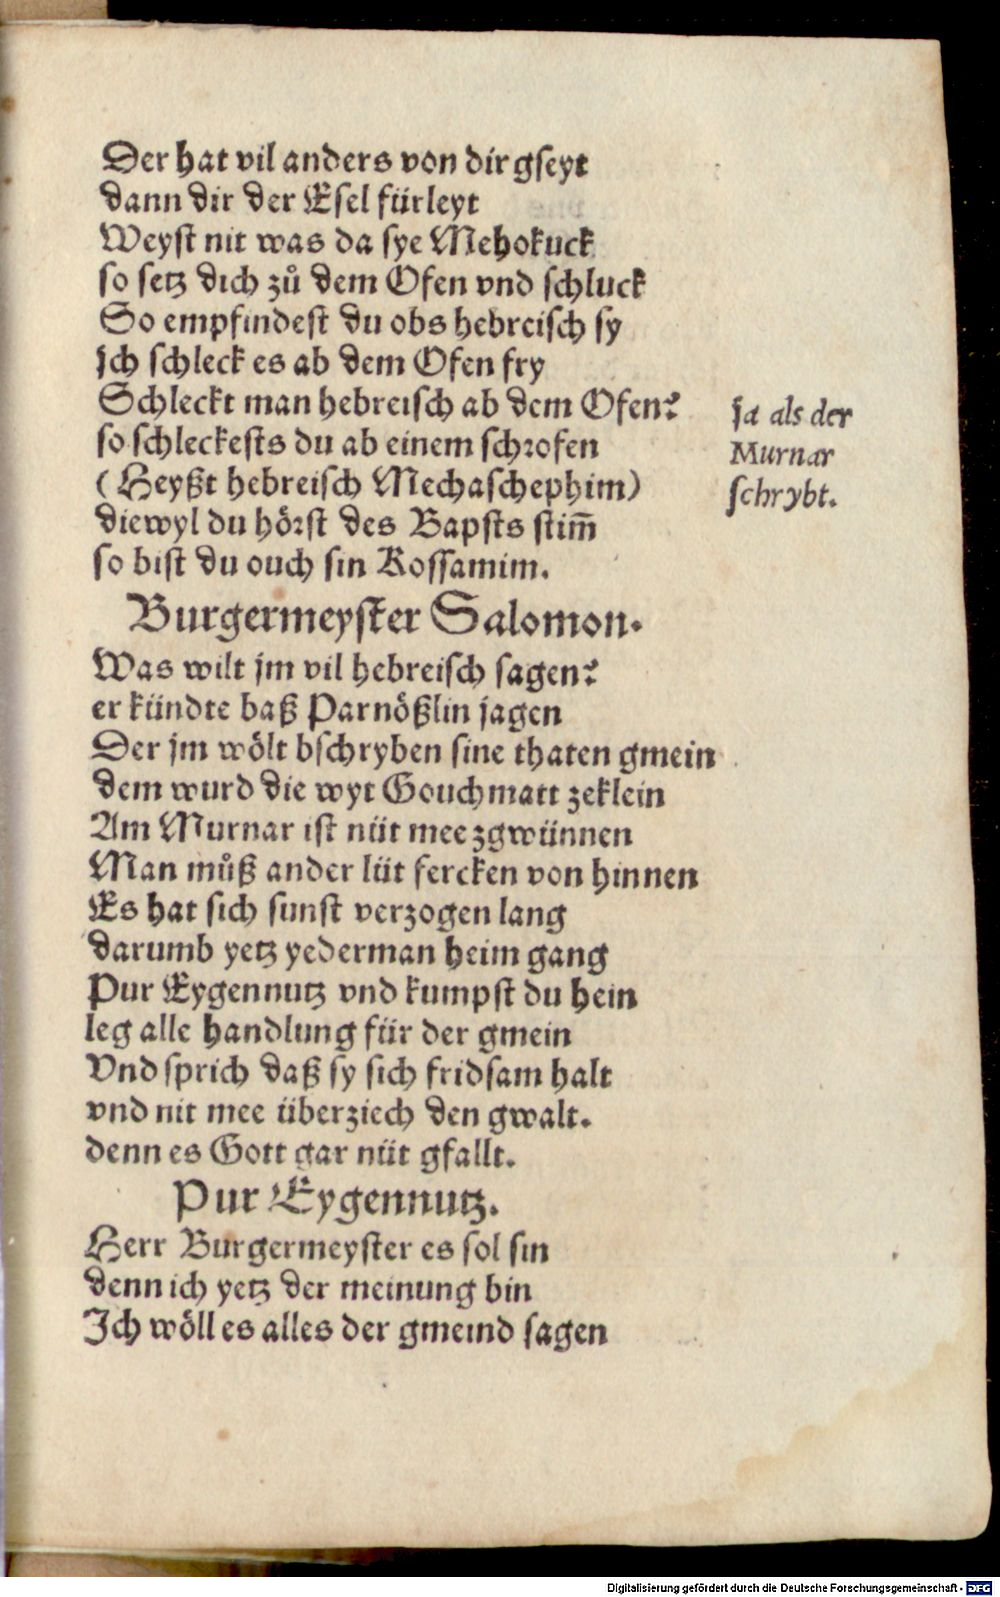 Der hat vil anders von dir gseyt
dann dir der Esel fürleyt
Weyst nit was da sye Mehokuck
so setz dich zů dem Ofen vnd schluck
So empfindest du obs hebreisch sy
jch schleck es ab dem Ofen fry
Schleckt man hebreisch ab dem Ofen?
so schleckests du ab einem schrofen
(Heyßt hebreisch Mechaschephim)
diewyl du hörst des Bapsts stim̄
so bist du ouch sin Kossamim.
ja als der
Murnar
schrybt.
Burgermeyster Salomon.
Was wilt jm vil hebreisch sagen?
er kündte baß Parnößlin jagen
Der jm wölt bschryben sine thaten gmein
dem wurd die wyt Gouchmatt zeklein
Am Murnar ist nüt mee zgwünnen
Man můß ander lüt fercken von hinnen
Es hat sich sunst verzogen lang
darumb yetz yederman heim gang
Pur Eygennutz vnd kumpst du hein
leg alle handlung für der gmein
Vnd sprich daß sy sich fridsam halt
vnd nit mee überziech den gwalt.
denn es Gott gar nüt gfallt.
Pur Eygennutz.
Herr Burgermeyster es sol sin
denn ich yetz der meinung bin
Ich wöll es alles der gmeind sagen
Digitalisierung gefördert durch die Deutsche Forschungsgemeinschaft - DFG